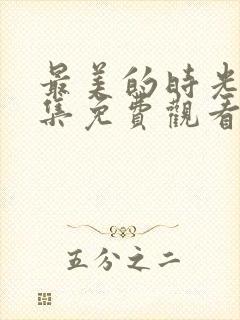 最美的時光
集免費觀看
五分之二